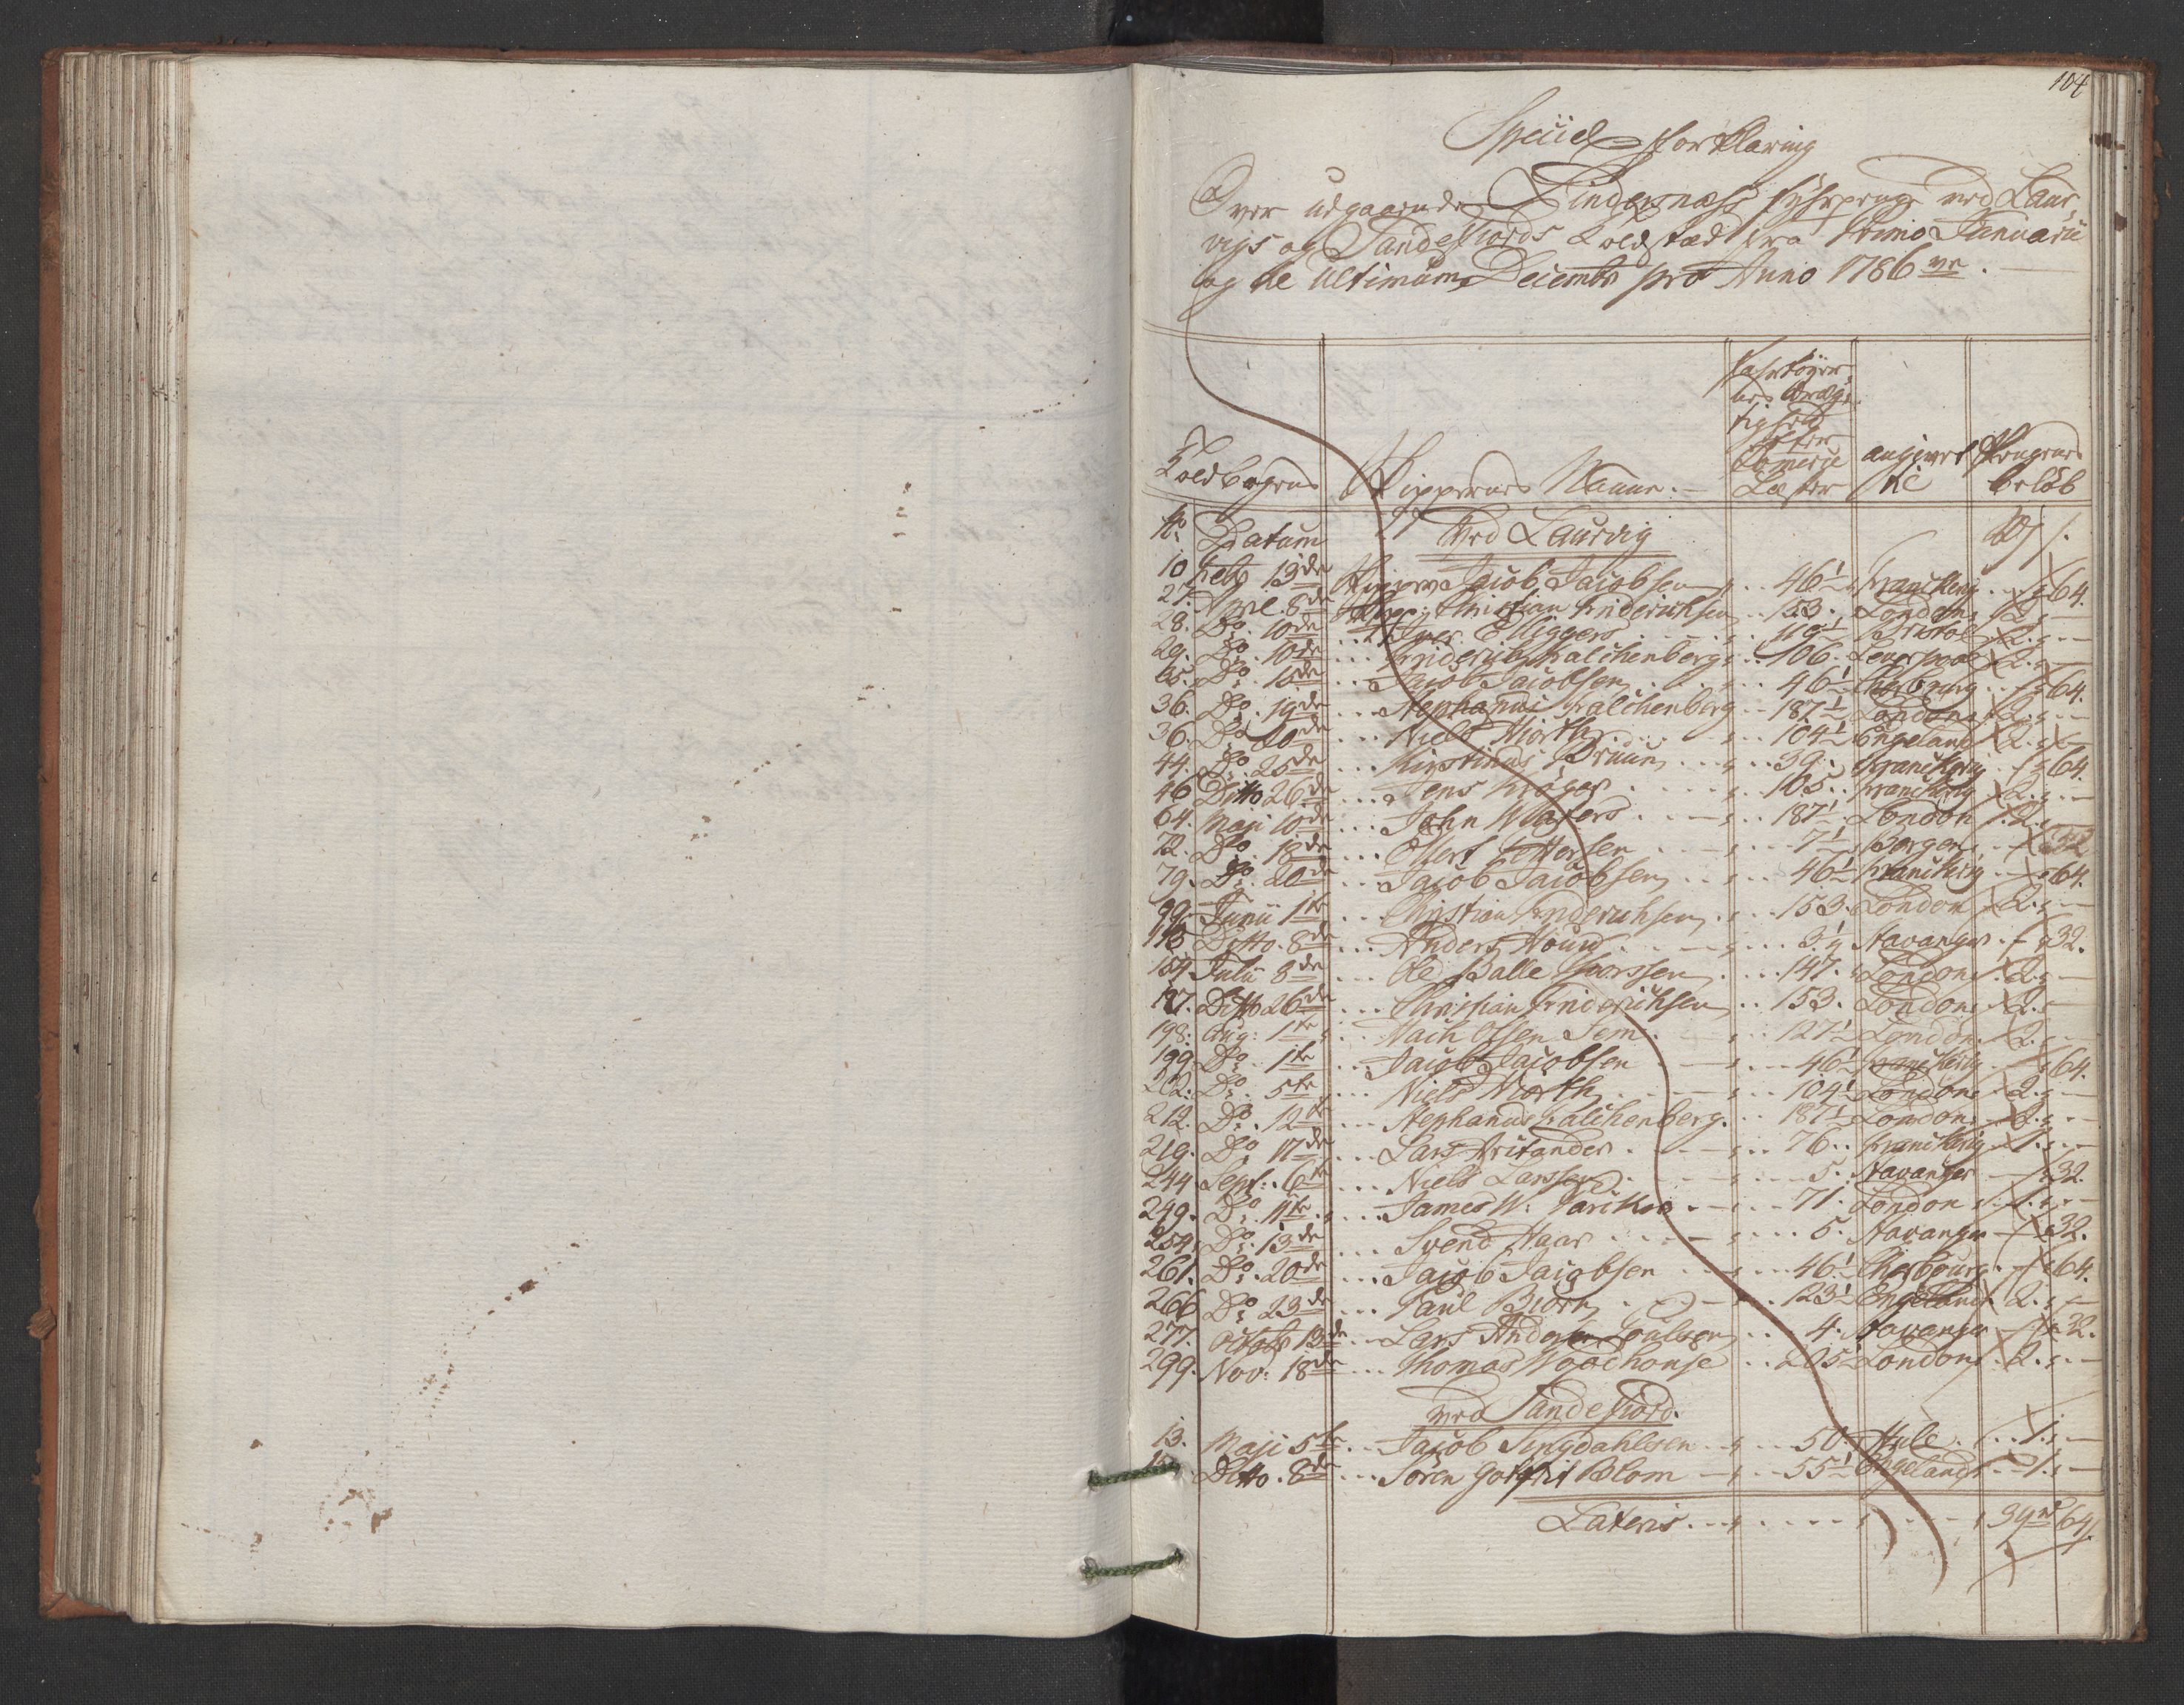 104
Speciel Forklaring
Over udgaaende Lindernæss fyhrpenge ved Laur¬
vigs og Sandefiords Toldsted fra Primo Januarii
og til Ultimum Decembr pro Anno 1786
Toldbogens
Skippernes Nafne.
Fahrtøyer¬
nes Drægt¬
tighed
efter
Comerce
Læster
angivet
til
Pengenes
beløb
No Datum Ved Laurvig Rd s.
10 Feb 13de Skipper Jacob Jacobsen 46½ Franckerig 64.
27. April 8de Skipp: Christian Friderichsen 153. London 2
28. Do. 10de Iver Eliggers 119½ Bristol 2
29. Do. 10de Friderich Falchenberg 106. Leverpool 2
35. Do. 18de Jacob Jacobsen 46½ Cherbourg 64.
36. Do. 19de Stephanus Falchenberg 187½ London 2
36. Do. 20de Niels Hiorth 104½ Engeland 2
44. Do. 25de Christinus Bruun 39. Franckerig 64.
46 Ditto 26de Jens Krøger 105. Franckerig 2
64. Maji 10de John Waters 187½ London 2
72. Do. 18de Ellert Pettersen 7½ Bergen 32
79. Do. 20de Jacob Jacobsen 46½ Franckerig 64.
99. Junii 1te Christian Friderichsen 153. London 2
Ditto. 8de Anders Houd 3½ Stavanger 32.
154 Julii 8de Ole Balle Thorssen 147. London 2
187. Ditto 26de Christian Friderichsen 153. London 2
198. Aug: 1te Olsen Sem 127½ London 2.
199 Do. 1te Jacob Jacobsen 46½ Franckerig 64.
202. Do. 5te Niels Hiorth 104½ London 2.
212. Do. 12te Stephanus Falchenberg. 187½ London 2.
219. Do. 17de Lars Aritander 76. Franckerig 1.
244 Sept: 6te Niels Larssen 5. Stavanger 32.
249. Do. 11te James W. 71. London 1.
254. Do. 13de Svend Haar 5. Stavanger 32.
261. Do. 20de Jacob Jacobsen 46½ Cherbourg 64.
266 Do. 23de Paul Biørn 123½ Engeland 2.
277. Octobr 13de Lars Andersen Poulsen 4. Stavanger 32.
299. Nov: 18de Thomas Woodhouse 205½ London 2.
ved Sandefiord.
13. Maji 5te Jacob Lingdahlsen 50. Hull 1.
Ditto. 8de Søren Gotfrit Blom 55½ Engeland 1.
Lateris 39 rd 64